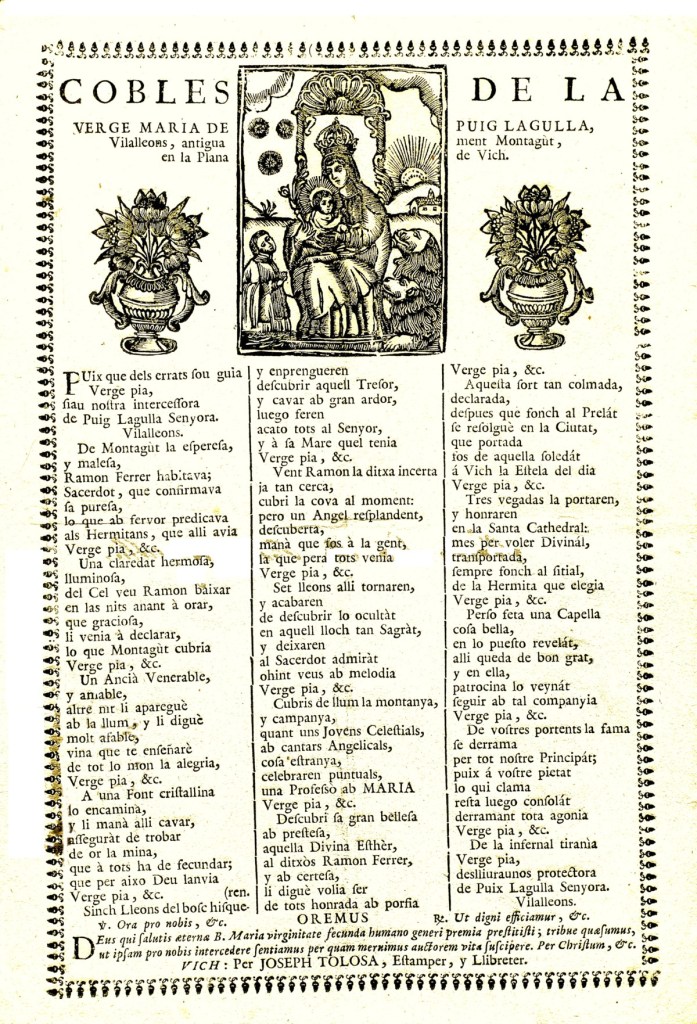 COBLES DE LA
VERGE MARIA DE PUIG LAGULLA,
Vilalleons, antiguament Montagùt,
en la Plana de Vich.
PUix que dels errats ſou guia
Verge pia,
ſiau noſtra interceſſora
de Puig Lagulla Senyora.
Vilalleons.
De Montagùt la eſpereſa,
y maleſa,
Ramon Ferrer habitava;
Sacerdot, que confirmava
ſa pureſa,
lo que ab fervor predicava
als Hermitans, que alli avia
Verge pia, &c.
Una claredat hermoſa,
lluminoſa,
del Cel veu Ramon baixar
en las nits anant à orar,
que gracioſa,
li venia à declarar,
lo que Montagùt cubria
Verge pia, &c.
Un Ancià Venerable,
y amable,
altre nit li apareguè
ab la llum, y li diguè
molt afable,
vina que te enſeñarè
de tot lo mon la alegria,
Verge pia, &c.
A una Font criſtallina
lo encamina,
y li manà alli cavar,
aſſeguràt de trobar
de or la mina,
que à tots ha de fecundar;
que per aixo Deu lanvia
Verge pia, &c. (ren.
Sinch Lleons del boſc hiſque-
y enprengueren
deſcubrir aquell Treſor,
y cavar ab gran ardor,
luego feren
acato tots al Senyor,
y à ſa Mare quel tenia
Verge pia, &c.
Vent Ramon la ditxa incerta
ja tan cerca,
cubri la cova al moment:
pero un Angel reſplandent,
deſcuberta,
manà que fos à la gent,
la que pera tots venia
Verge pia, &c.
Set lleons alli tornaren,
y acabaren
de deſcubrir lo ocultàt
en aquell lloch tan Sagràt,
y deixaren
al Sacerdot admiràt
ohint veus ab melodia
Verge pia, &c.
Cubris de llum la montanya,
y campanya,
quant uns Jovens Celeſtials,
ab cantars Angelicals,
coſa eſtranya,
celebraren puntuals,
una Profeſso ab MARIA
Verge pia, &c.
Deſcubri ſa gran belleſa
ab preſteſa,
aquella Divina Eſthèr,
al ditxòs Ramon Ferrer,
y ab certeſa,
li diguè volia ſer
de tots honrada ab porſia
Verge pia, &c.
Aqueſta ſort tan colmada,
declarada,
deſpues què fonch al Prelát
ſe reſolguè en la Ciutat,
que portada
fos de aquella ſoledát
á Vich la Eſtela del dia
Verge pia, &c.
Tres vegadas la portaren,
y honraren
en la Santa Cathedral:
mes per voler Divinál,
tranſportada,
ſempre fonch al ſitial,
de la Hermita que elegia
Verge pia, &c.
Perſo feta una Capella
coſa bella,
en lo pueſto revelát,
alli queda de bon grat,
y en ella,
patrocina lo veynát
ſeguir ab tal companyia
Verge pia, &c.
De voſtres portents la fama
ſe derrama
per tot noſtre Principát;
puix á voſtre pietat
lo qui clama
reſta luego conſolát
derramant tota agonia
Verge pia, &c.
De la infernal tiranìa
Verge pia,
deslliuraunos protectora
de Puix Lagulla Senyora.
Vilalleons.
℣. Ora pro nobis, &c. OREMUS ℟. Ut digni efficiamur, &c.
DEus qui ſalutis æternæ B. Maria virginitate fecunda humano generi premia preſtitiſti; tribue quæſumus,
ut ipſam pro nobis intercedere ſentiamus per quam meruimus auctorem vita ſuſcipere. Per Chriſtum, &c.
VICH: Per JOSEPH TOLOSA, Eſtamper, y Llibreter.